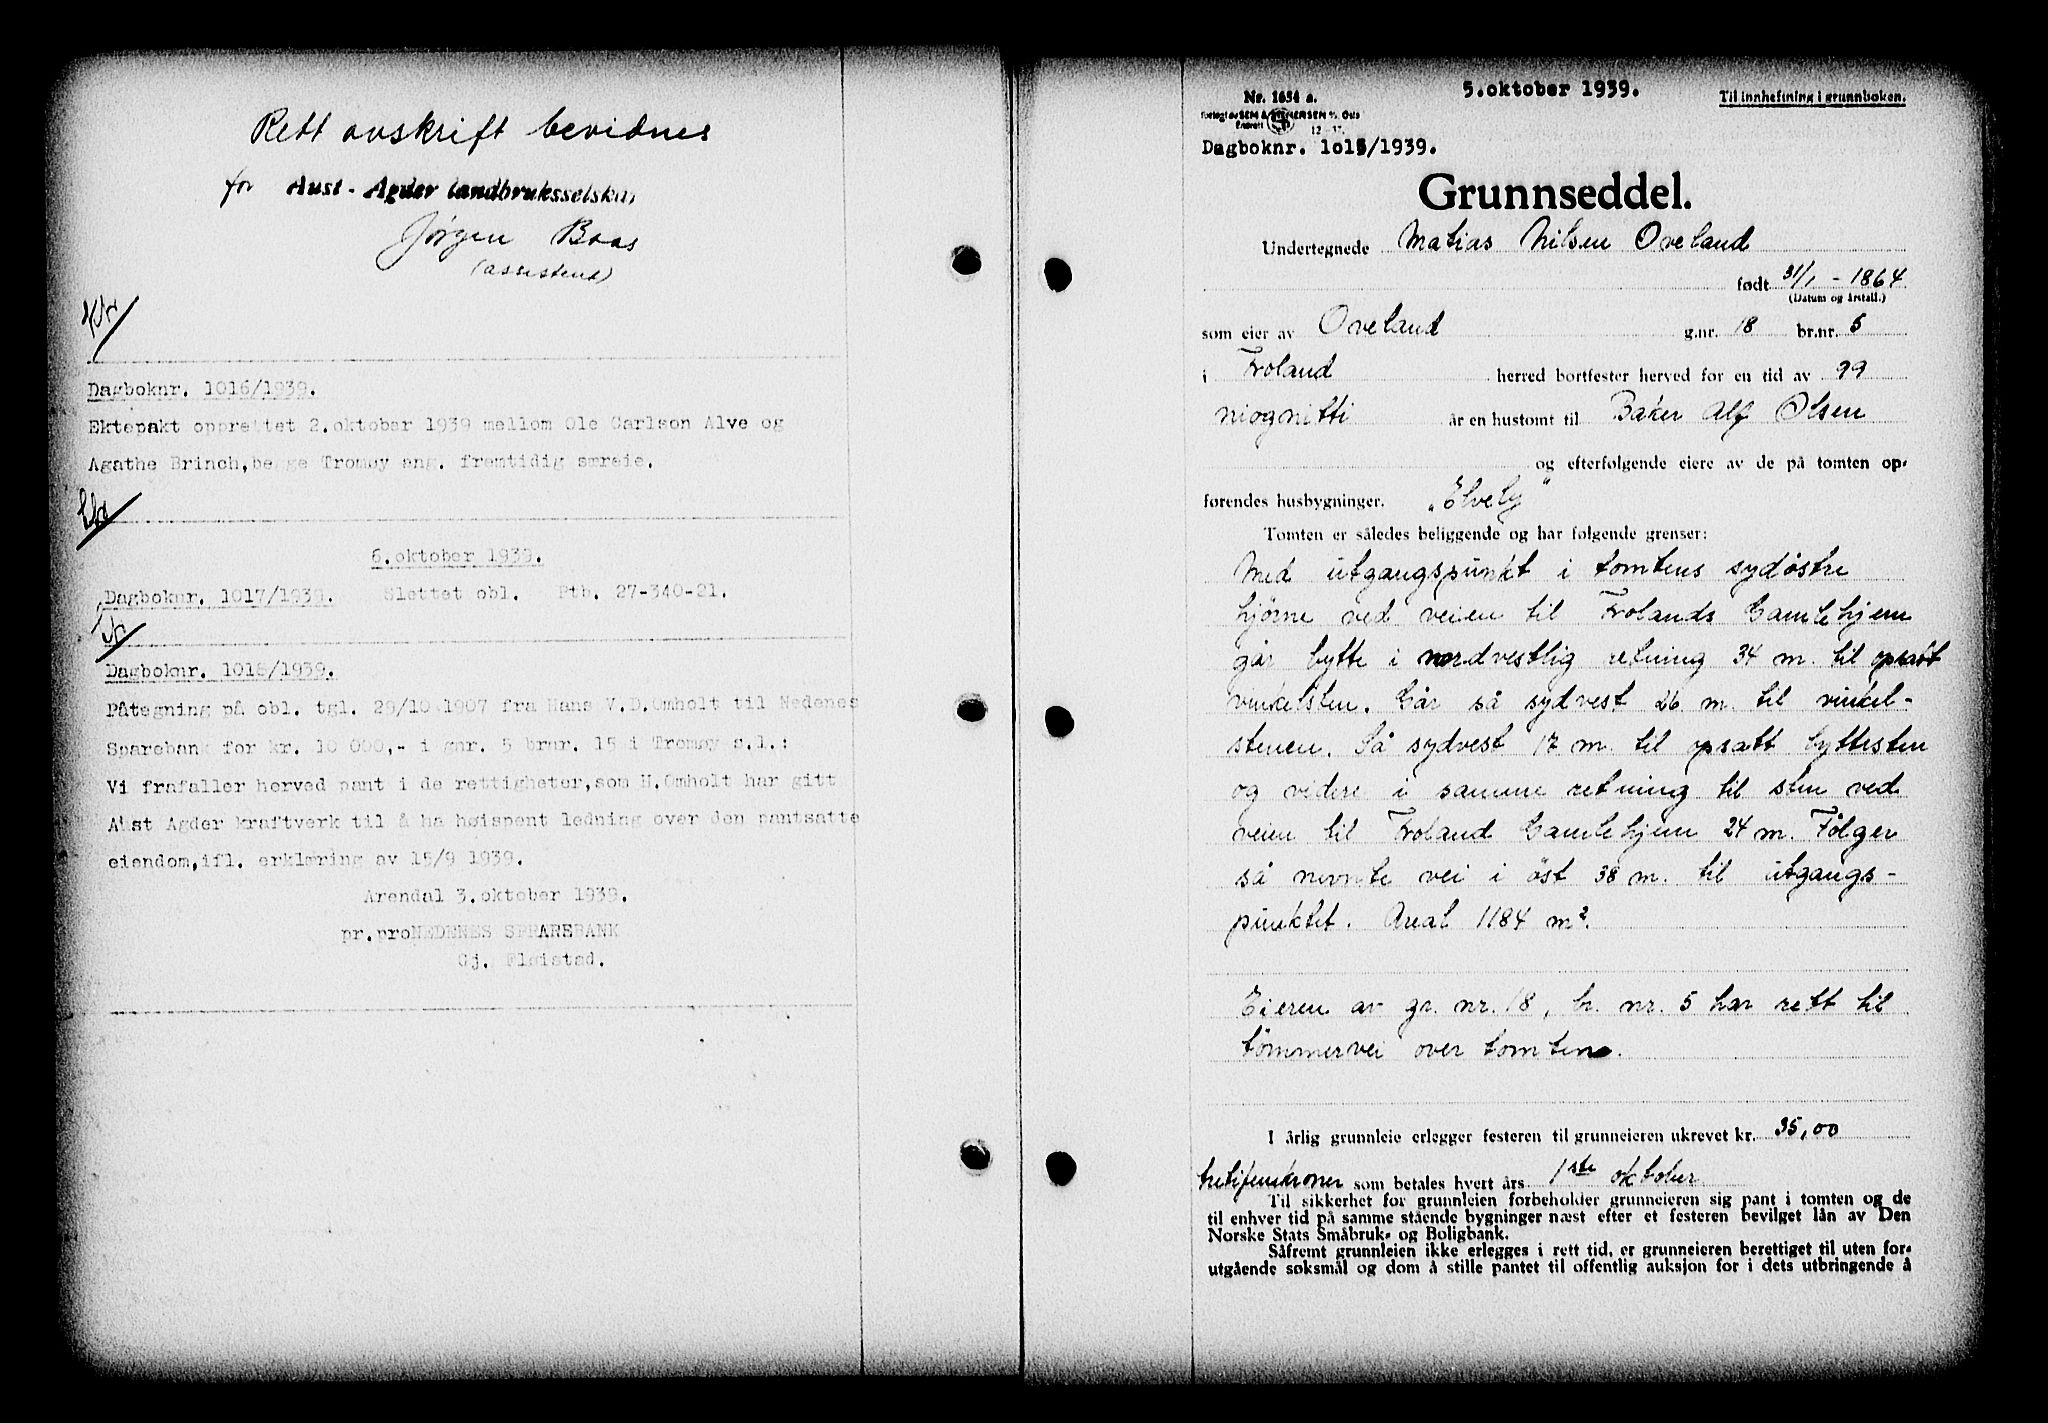 Rett avskrift bevidnes
for Aust-Agder landbruksselskap
Jørgen Boas
(assistent)
Dagboknr. 1016/1939.
Ektepakt opprettet 2.oktober 1939 mellom Ole Carlson Alve og
Agathe Brinch, begge Tromøy ang. fremtidig særeie.
6.oktober 1939.
Dagboknr. 1017/1939. Slettet obl. Ptb. 27-340-21.
Dagboknr. 1018/1939.
Påtegning på obl. tgl. 29/10 1907 fra Hans V.D.Omholt til Nedenes
Sparebank for kr. 10 000,- i gnr. 5 brnr. 15 i Tromøy s.l.:
Vi frafaller herved pant i de rettigheter,som H.Omholt har gitt
Aust Agder kraftverk til å ha høispent ledning over den pantsatte
eiendom,ifl. erklæring av 15/9 1939.
Arendal 3.oktober 1939.
pr.pro NEDENES SPAREBANK
Gj. Fløistad.
5.oktober 1939.
Nr. 1654 a.
Til innheftning i grunnboken.
Dagboknr. 1015/1939.
Grunnseddel.
Undertegnede Matias Nilsen Oveland
født 31/1 - 1864
(Datum og årstall.)
som eier av Oveland g.nr. 18 br.nr. 5
i Froland herred bortfester herved for en tid av 99
niognitti år en hustomt til Baker Alf Olsen
og efterfølgende eiere av de på tomten op-
førendes husbygninger. "Elvely"
Tomten er således beliggende og har følgende grenser:
Med utgangspunkt i tomtens sydøstre
hjørne ved veien til Frolands Gamlehjem
går bytte i nordvestlig retning 34 m. til opsatt
vinkelsten. Går så sydvest 26 m. til vinkel-
stenen. Så sydvest 17 m. til opsatt byttesten
og videre i samme retning til sten ved
veien til Froland Gamlehjem 24 m. Følger
så nevnte vei i øst 38 m. til utgangs-
punktet. Areal 1184 m².
Eieren av gr. nr. 18, br. nr. 5 har rett til
tømmervei over tomten.
I årlig grunnleie erlegger festeren til grunneieren ukrevet kr. 35,00
trettifemkroner som betales hvert års 1ste oktober
Til sikkerhet for grunnleien forbeholder grunneieren sig pant i tomten og de
til enhver tid på samme stående bygninger næst efter et festeren bevilget lån av Den
Norske Stats Småbruk- og Boligbank.
Såfremt grunnleien ikke erlegges i rett tid, er grunneieren berettiget til uten for-
utgående søksmål og dom å stille pantet til offentlig auksjon for i dets utbringende å